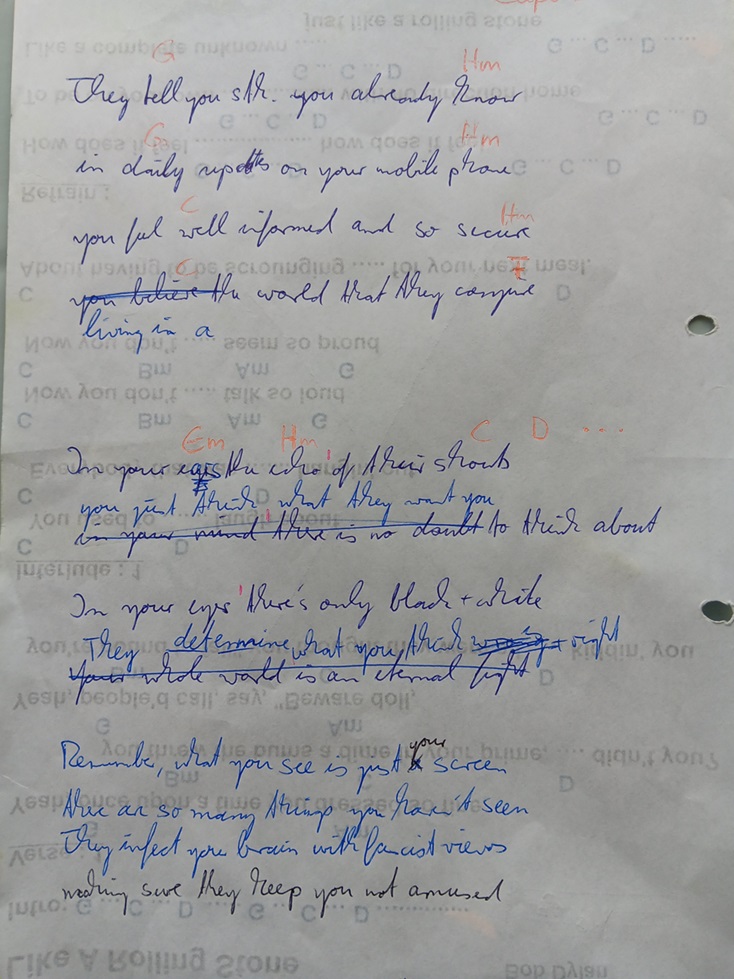 G Hm
They tell you sth. you already know
G Hm
in daily reports on your mobile phone
C Hm
you feel well informed and so secure
C
you believe the world that they conspire
living in a
Em Hm C D ...
In your ears the echo of their shouts
you just think what they want you
in your mind there is no doubt to think about
In your eyes there's only black + white
They determine what you think wrong + right
Your whole world is an eternal fight
Remember, what you see is just your screen
there are so many things you haven't seen
They infect your brain with fascist views
making sure they keep you not amused